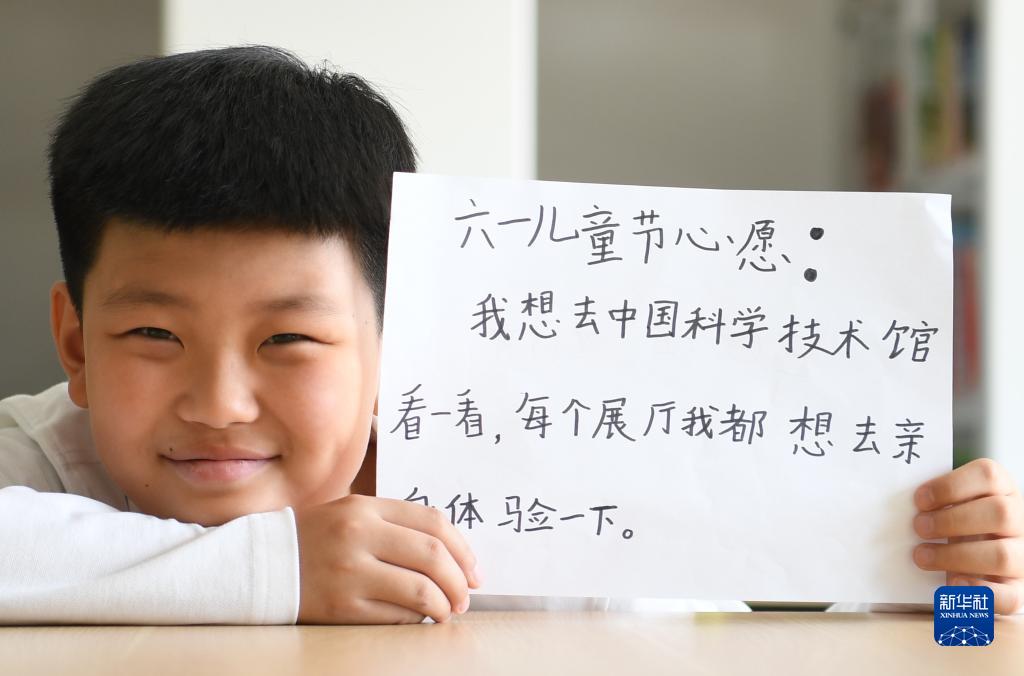 六一儿童节心愿：
我想去中国科学技术馆
看一看，每个展厅我都想去亲
身体验一下。
新华社
XINHUA NEWS